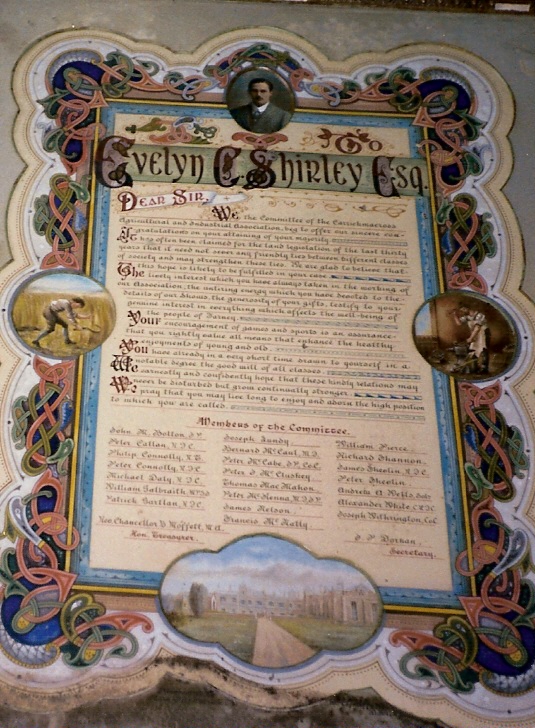 To
Evelyn C. Shirley Esq.
Dear Sir,
We the Committee of the Carrickmacross
Agricultural and Industrial Association, beg to offer our sincere con-
gratulations on your attaining of your majority
It has often been claimed for the land legislation of the last thirty
years that it need not sever any friendly ties between different classes
of society and may strengthen these ties. We are glad to believe that
this hope is likely to be fulfilled in your case
The lively interest which you have always taken in the working of
our Association, the untiring energy which you have devoted to the
details of our Shows, the generosity of your gifts, testify to your
genuine interest in everything which affects the well-being of
the people of Farney
Your encouragement of games and sports is an assurance
that you rightly value all means that enhance the healthy
enjoyments of young and old
You have already in a very short time drawn to yourself in a
large degree the good will of all classes
We earnestly and confidently hope that these kindly relations may
never be disturbed but grow continually stronger
We pray that you may live long to enjoy and adorn the high position
to which you are called
Members of the Committee.
John M. Bolton, J.P. Joseph Gundy William Pierce
Peter Callan, R.D.C. Bernard McCaul, M.D. Richard Shannon
Philip Connolly, Peter McCabe, D.P. Co.C. James Sheolin, R.D.C.
Peter Connolly, R.D.C. Peter J. McCluskey Peter Sheolin
Michael Daly, R.D.C. Thomas MacMahon Andrew A. Wells
William Galbraith, Peter McKenna, Alexander White
Patrick Gartlan, R.D.C. James Nelson Joseph Witherington
Francis McNally
Rev. Chancellor Moffett,
Hon. Treasurer. Dorhan
Secretary.